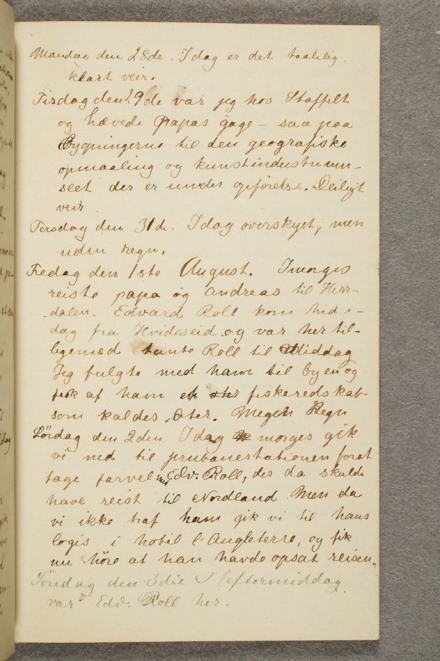 Mandag den 28de. Idag er det taalelig
klart veir.
Tisdag den 29de var jeg hos Staffelt
og hævede papas gage - saa paa
Bygningerne til den geografiske
opmaaling og kunstindustrimu-
seet der er under opførelse. Deiligt
veir
Torsdag den 31d. Idag overskyet, men
uden regn.
Fredag den 1ste August. Imorges
reiste papa og Andreas til Herr-
dalen. Edvard Roll kom hid i-
dag fra Hvideseid og var her til-
ligemed tante Roll til Middag
Jeg fulgte med ham til byen og
fik af ham et fiskeredskab
som kaldes Oter. Megen Regn
Lørdag den 2den. Idag morges gik
vi ned til jernbanestationen forat
tage farvel Edv. Roll, der da skulde
have reist til Nordland Men da
vi ikke traf ham gik vi til hans
logis i hotil l'Angleterre, og fik
nu høre at han havde opsat reisen.
Søndag den 3die I Eftermiddag
var Edv. Roll her.